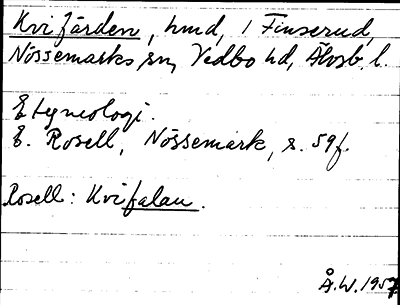 Kvifärden, hmd, 1 Finserud,
Nössemarks sn, Vedbo hd, Älvsb. l.
Etymologi.
E. Rosell, Nössemark, s. 59f.
Rosell: Kvifalan.
Å.W. 1957